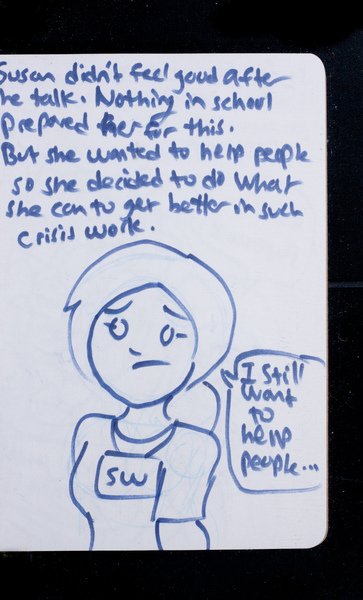 Susan didn't feel good after
he talk. Nothing in school
prepared her for this.
But she wanted to help people
so she decided to do what
she can to get better in such
crisis work.
I still
want
to
help
people...
SW